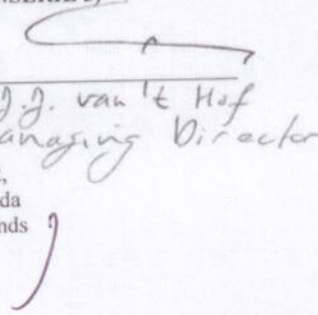 J.J. van 't Hof
anaging Director
,
da
nds